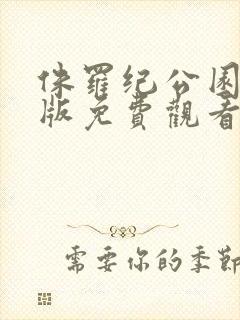 侏羅纪公园
版免費觀看
需要你的季節